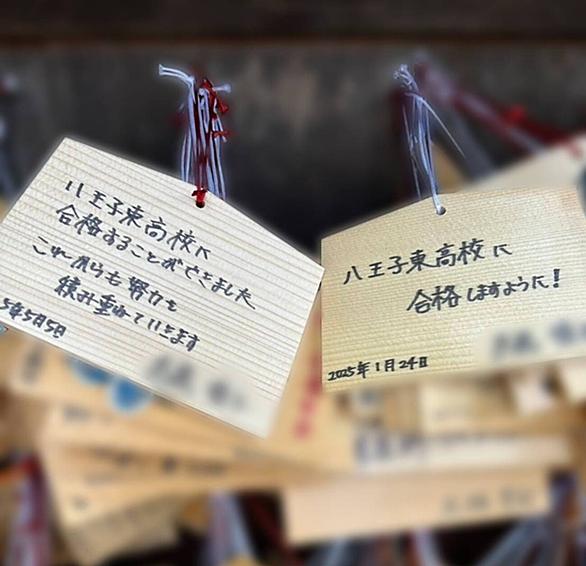 八王子東高校に
合格することができました
これからも努力を
積み重ねていきます
5年5月5日
八王子東高校に
合格しますように!
2025年1月24日